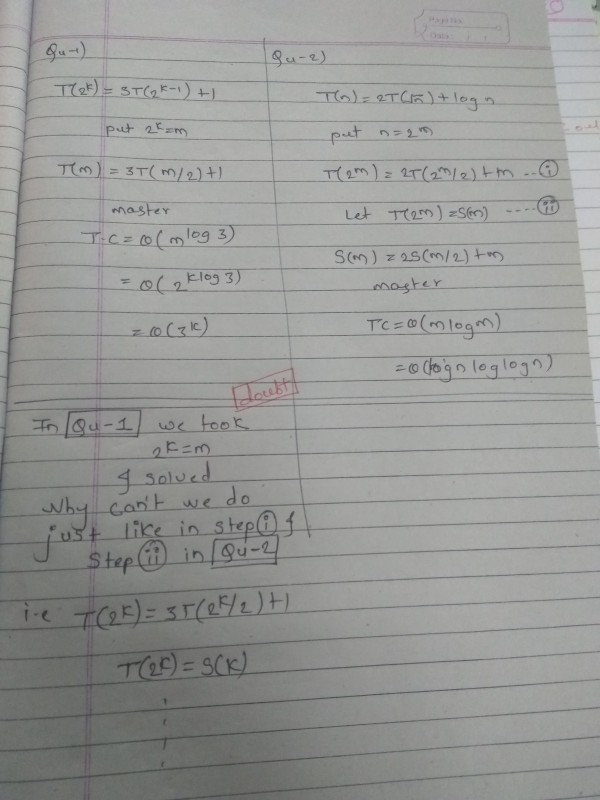 Qu-1)
T(2^k) = 3T(2^k-1) + 1
put 2^k=m
T(m) = 3T(m/2)+1
master
T.C = Θ(m^log 3)
= Θ(2^klog3)
= Θ(3^k)
Qu-2)
T(n) = 2T(√n) + log n
put n = 2^m
T(2^m) = 2T(2^m/2) + m --- (i)
Let T(2^m) = S(m) ---- (ii)
S(m) = 2S(m/2) + m
master
TC = Θ(m log m)
= Θ(logn log logn)
doubt
In Qu-1 we took
2^k = m
& solved
Why can't we do
just like in step (i) &
Step (ii) in Qu-2
i.e T(2^k) = 3T(2^k/2)+1
T(2^k) = S(k)